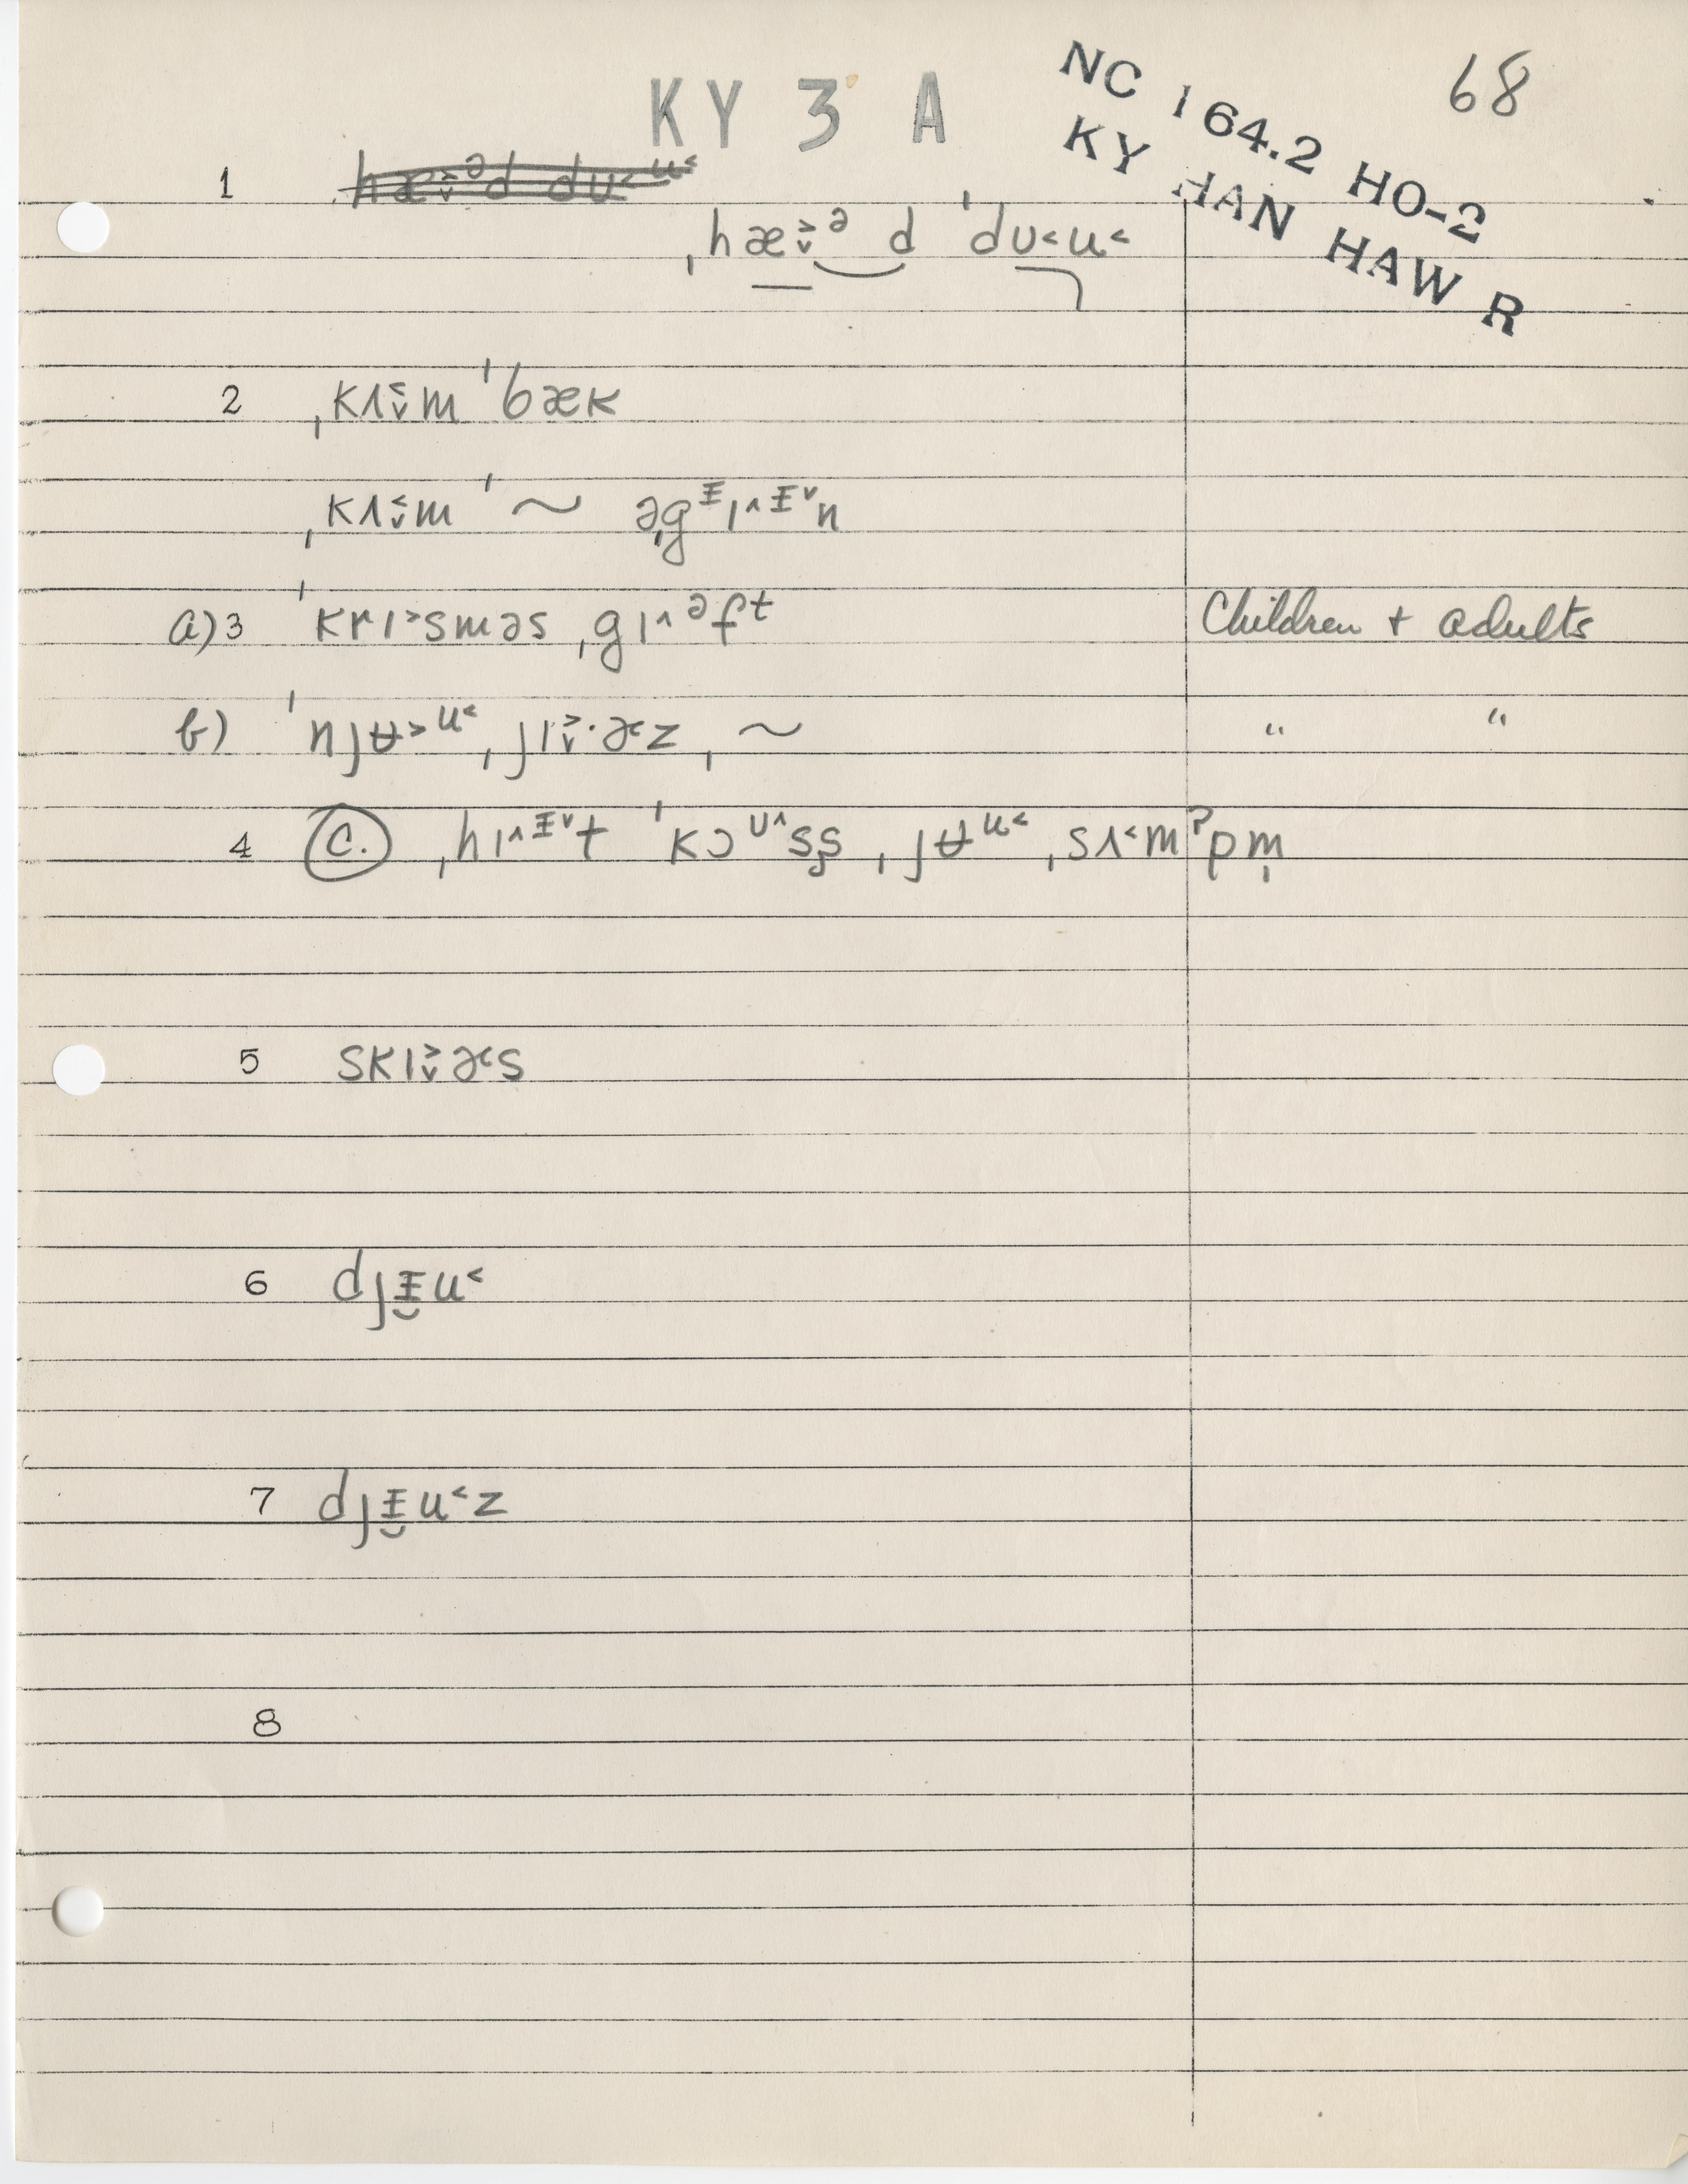 KY 3 A
NC 164.2 HO-2
KY HAN HAW R
68
1 hæ˅˃ᵊd dʊ˂ᵘ˂
ˌhæ˅˃ᵊ d ˈdʊ˂u˂
2 ˌkʌ˅˂m ˈbæk
ˌkʌ˅˂m ˈ~ əˌgᵻɪ˄ᵻ˅n
a) 3 ˈkrɪ˃sməs ˌgɪ˄ᵊfᵗ Children + adults
b) ˈnjʉ˃ᵘ˂ ˌjɪ˅˃·ɚz ˌ~ " "
4 C. ˌhɪ˄ᵻ˅t ˈkɔᶷ˄ss̩ ˌjʉᵘ˂ ˌsʌ˂mˀpm̩
5 skɪ˅˃ɚs
6 djᵻ̯u˂
7 djᵻ̯u˂z
8